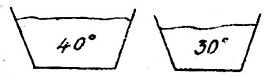 40°
30°